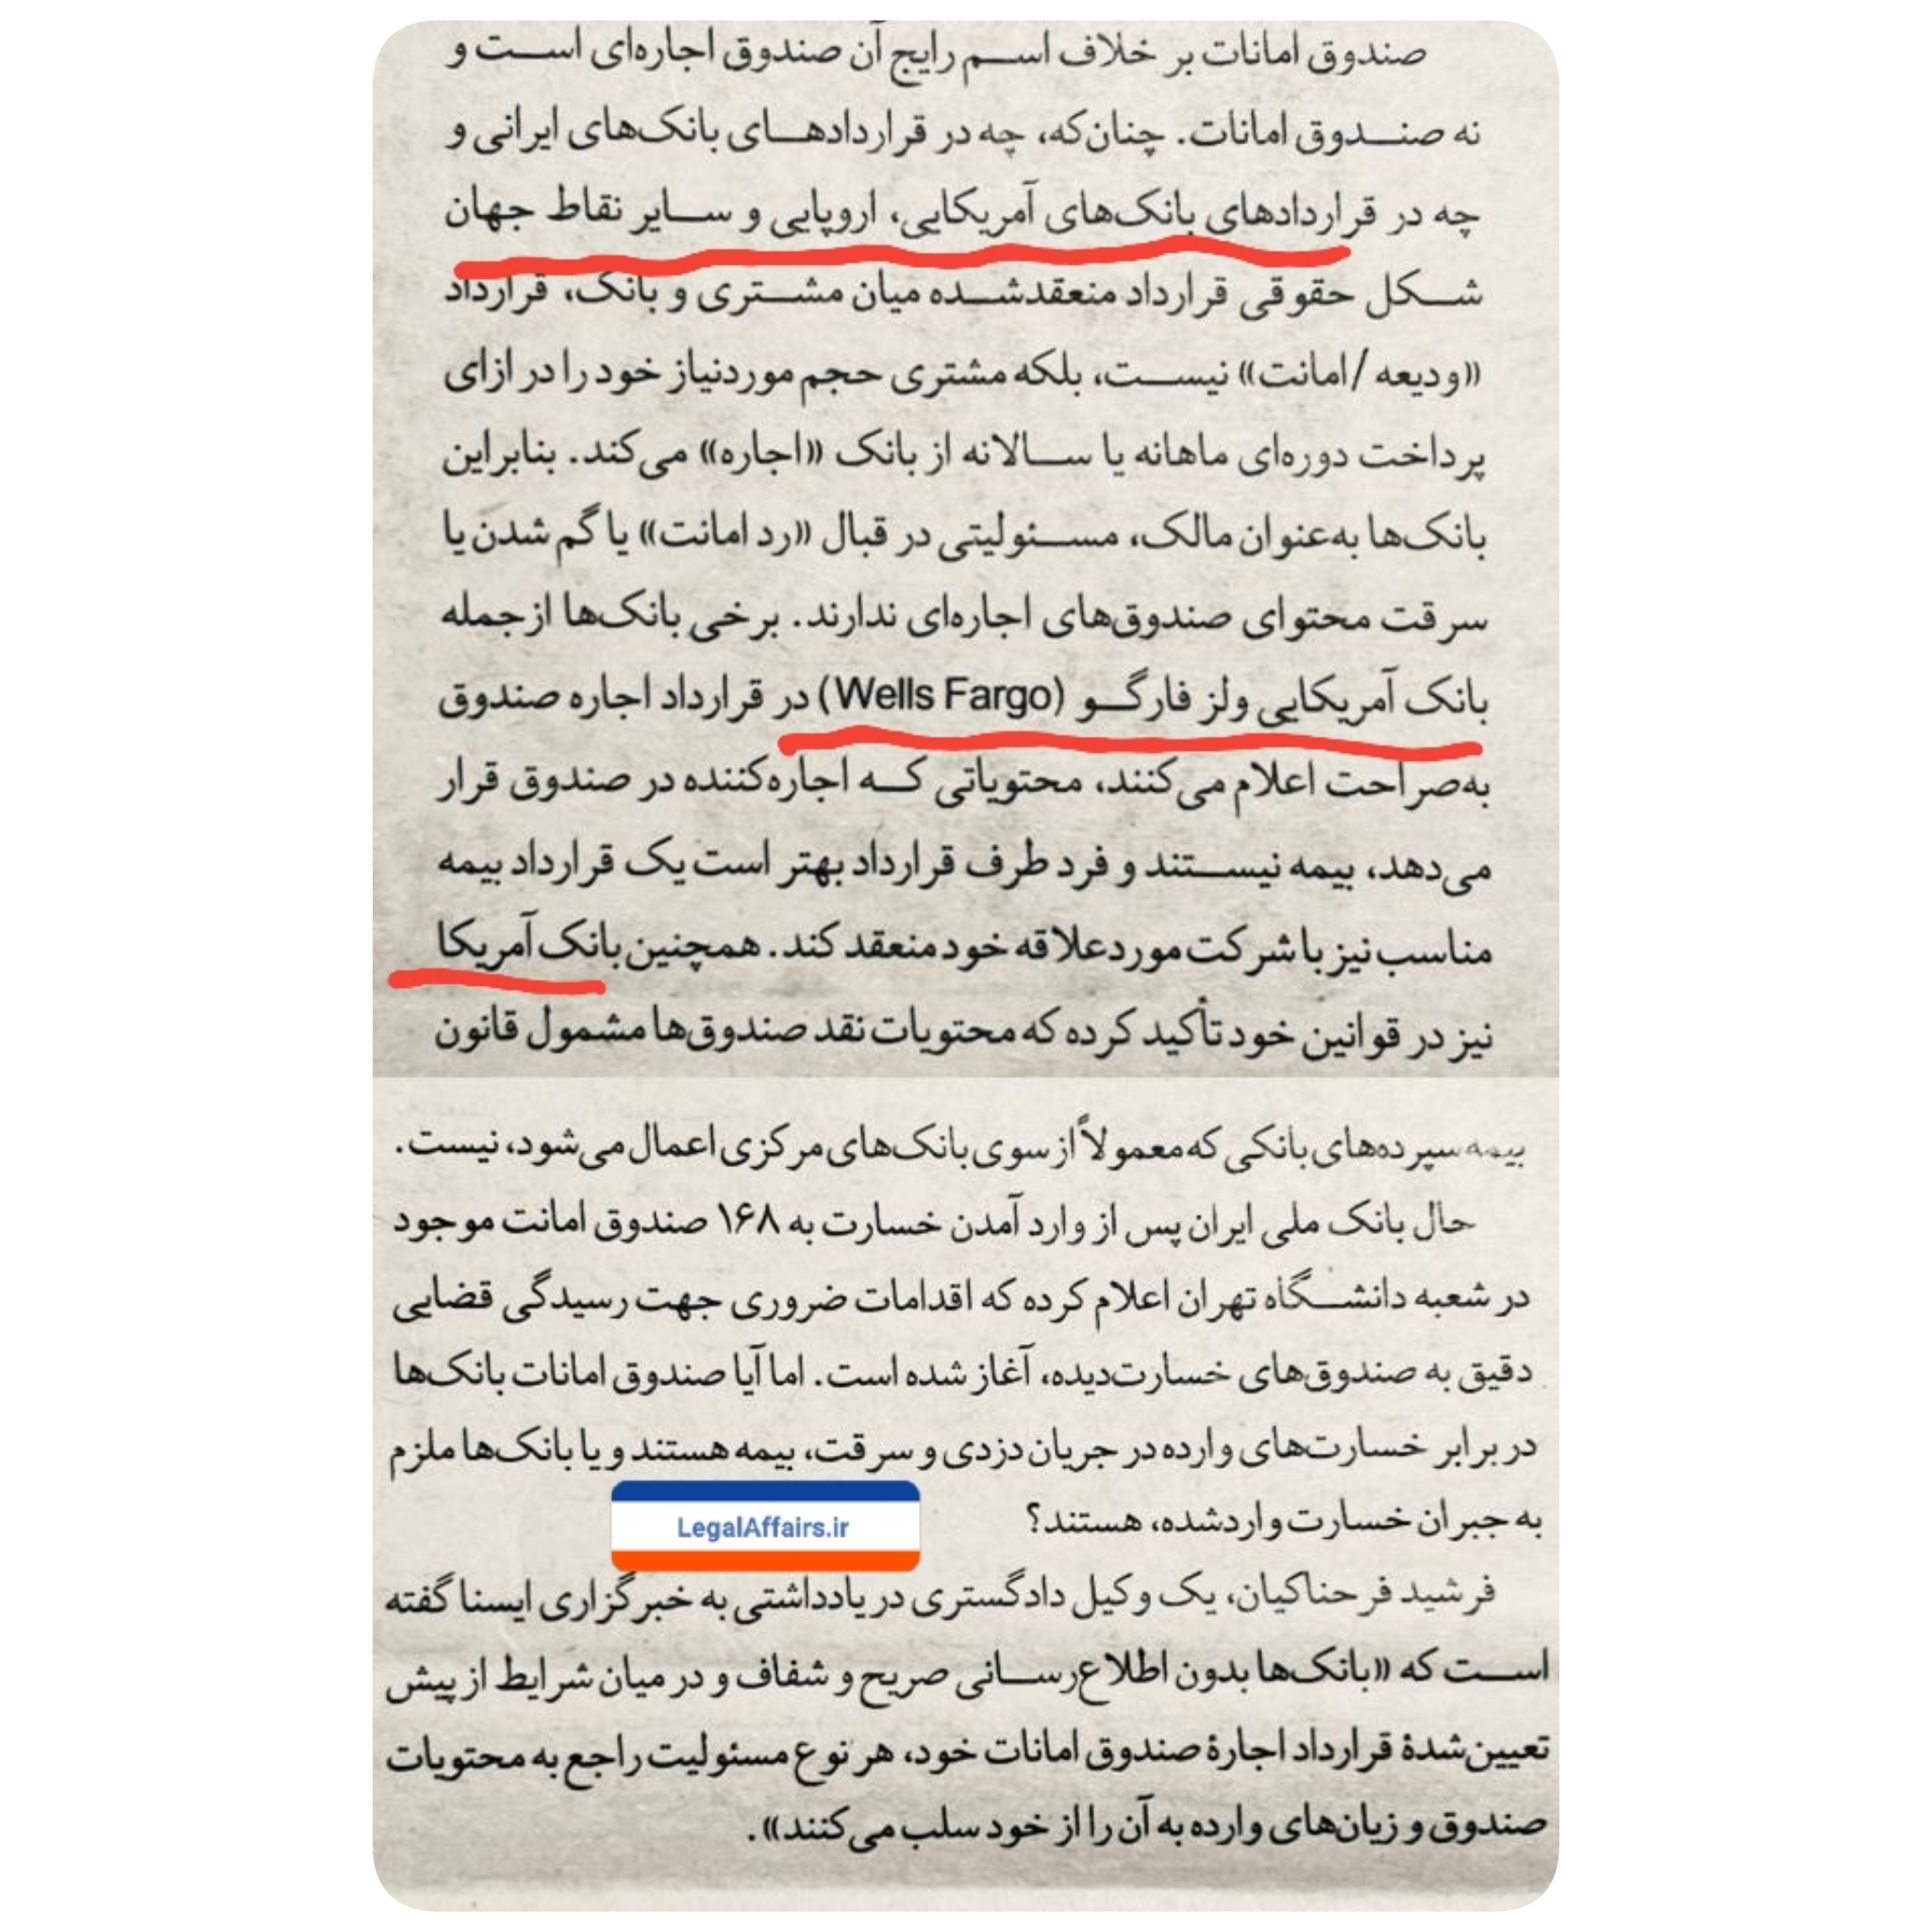 صندوق امانات بر خلاف اسم رایج آن صندوق اجاره‌ای است و
نه صندوق امانات. چنان‌که، چه در قراردادهای بانک‌های ایرانی و
چه در قراردادهای بانک‌های آمریکایی، اروپایی و سایر نقاط جهان
شکل حقوقی قرارداد منعقدشده میان مشتری و بانک، قرارداد
«ودیعه /امانت» نیست، بلکه مشتری حجم موردنیاز خود را در ازای
پرداخت دوره‌ای ماهانه یا سالانه از بانک «اجاره» می‌کند. بنابراین
بانک‌ها به‌عنوان مالک، مسئولیتی در قبال «رد امانت» یا گم شدن یا
سرقت محتوای صندوق‌های اجاره‌ای ندارند. برخی بانک‌ها ازجمله
بانک آمریکایی ولز فارگو (Wells Fargo) در قرارداد اجاره صندوق
به‌صراحت اعلام می‌کنند، محتویاتی که اجاره‌کننده در صندوق قرار
می‌دهد، بیمه نیستند و فرد طرف قرارداد بهتر است یک قرارداد بیمه
مناسب نیز با شرکت موردعلاقه خود منعقد کند. همچنین بانک آمریکا
نیز در قوانین خود تأکید کرده که محتویات نقد صندوق‌ها مشمول قانون
بیمه سپرده‌های بانکی که معمولاً از سوی بانک‌های مرکزی اعمال می‌شود، نیست.
حال بانک ملی ایران پس از وارد آمدن خسارت به ۱۶۸ صندوق امانت موجود
در شعبه دانشگاه تهران اعلام کرده که اقدامات ضروری جهت رسیدگی قضایی
دقیق به صندوق‌های خسارت‌دیده، آغاز شده است. اما آیا صندوق امانات بانک‌ها
در برابر خسارت‌های وارده در جریان دزدی و سرقت، بیمه هستند و یا بانک‌ها ملزم
به جبران خسارت واردشده، هستند؟
LegalAffairs.ir
فرشید فرحناکیان، یک وکیل دادگستری در یادداشتی به خبرگزاری ایسنا گفته
است که «بانک‌ها بدون اطلاع‌رسانی صریح و شفاف و در میان شرایط از پیش
تعیین‌شدهٔ قرارداد اجارهٔ صندوق امانات خود، هر نوع مسئولیت راجع به محتویات
صندوق و زیان‌های وارده به آن را از خود سلب می‌کنند».